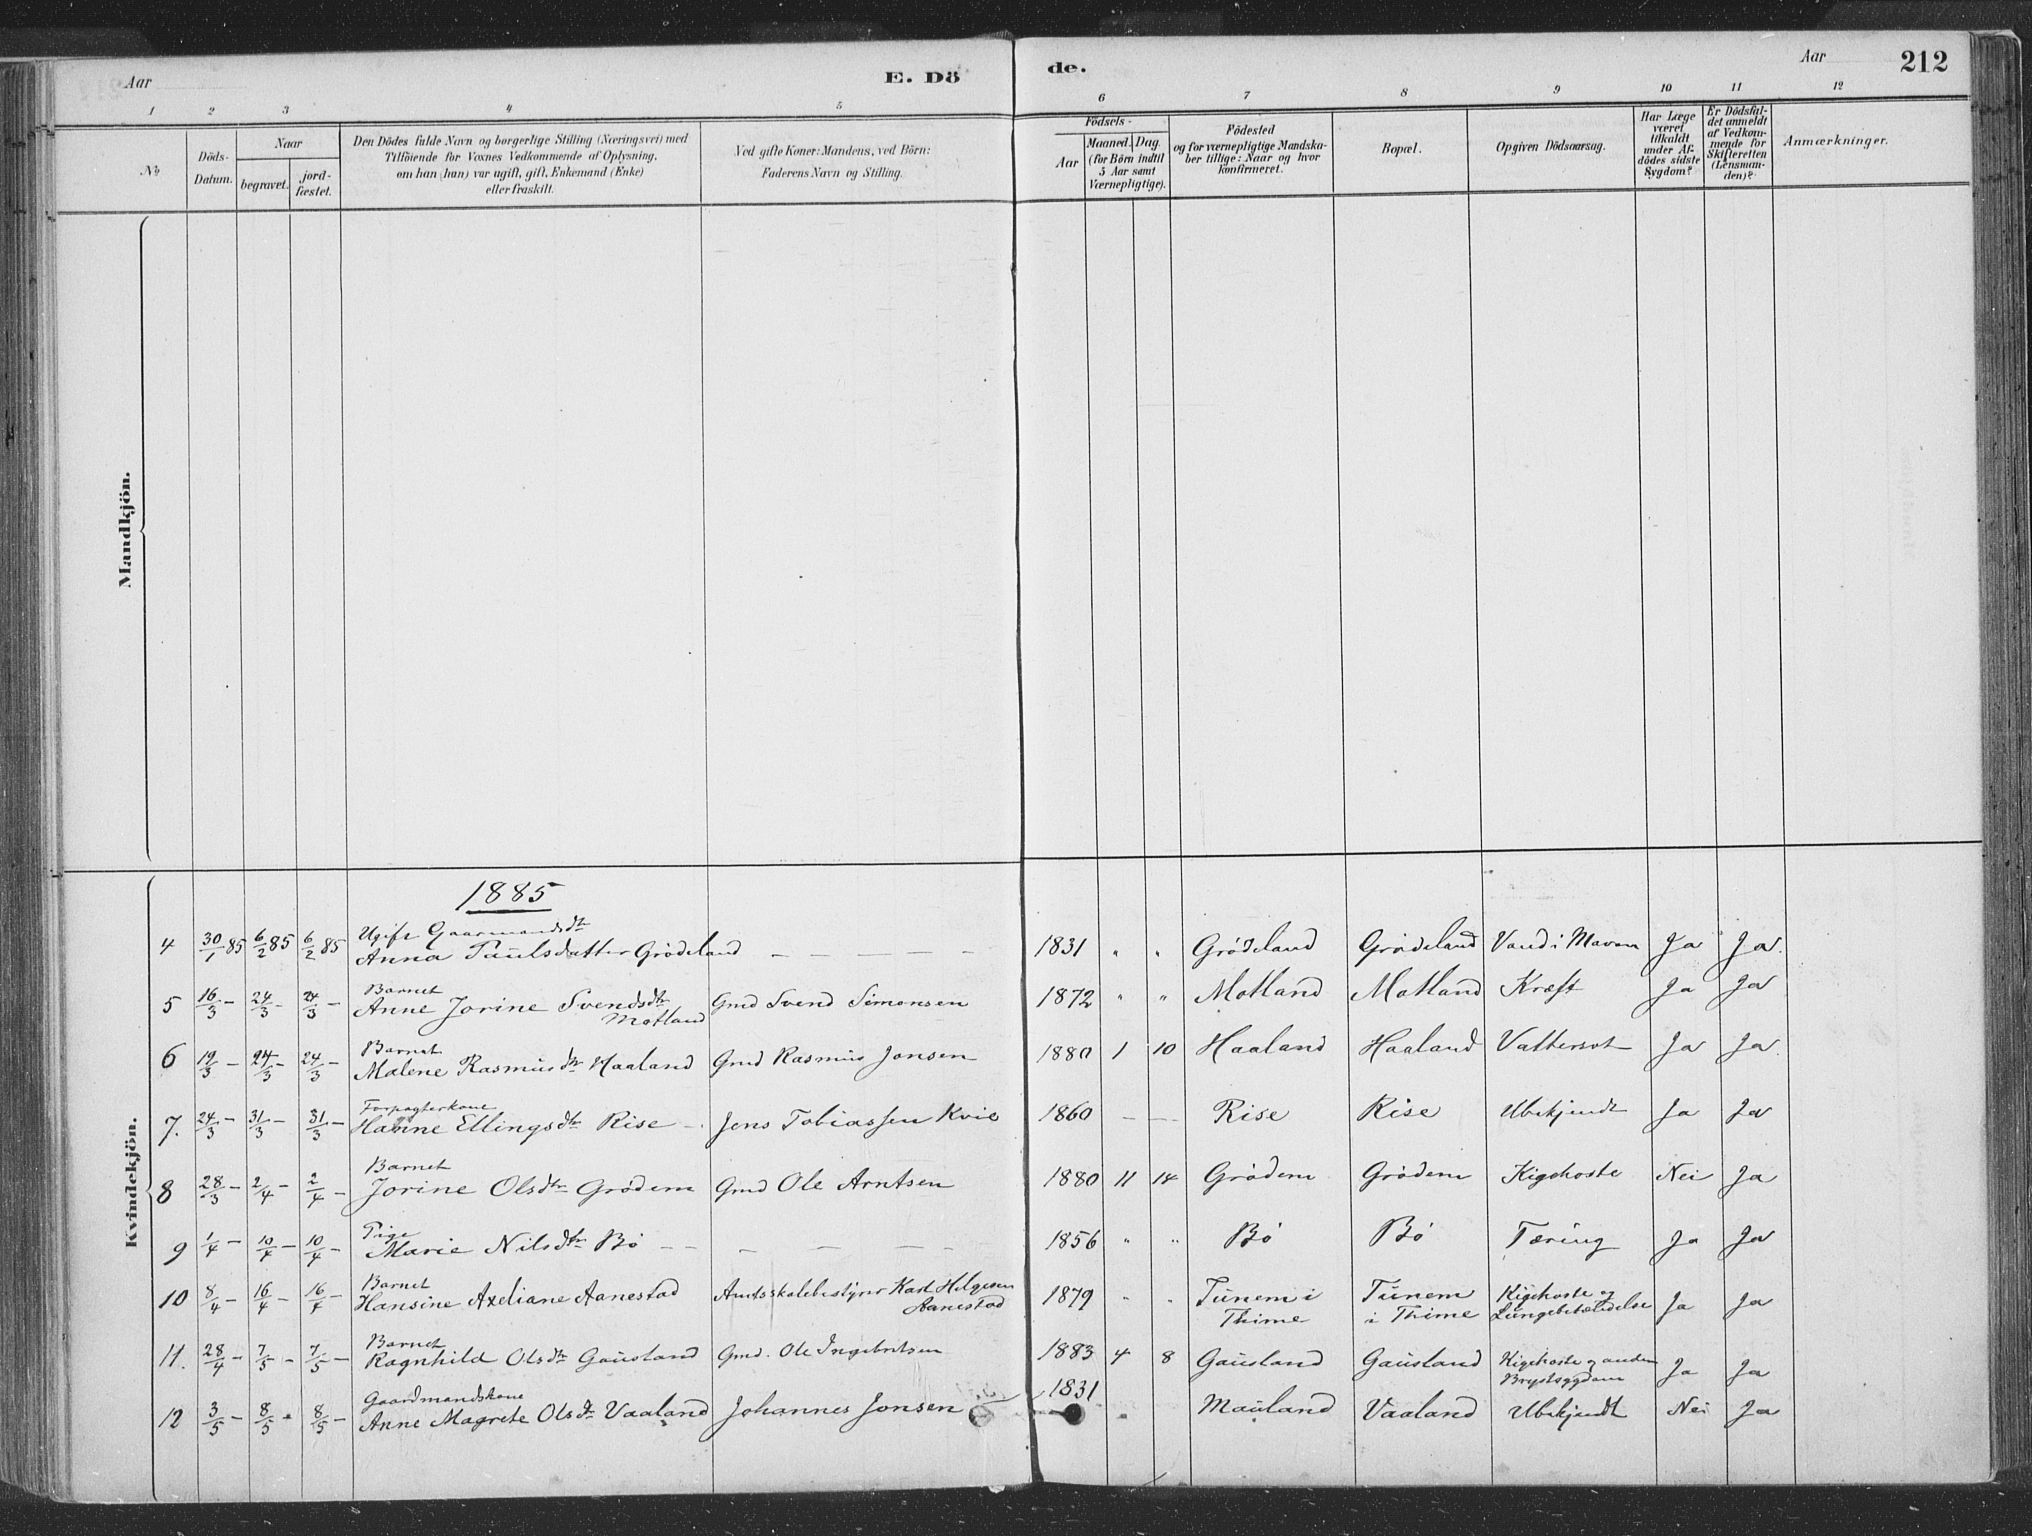 Aar E. Dö de. Aar 212
1 2 3 4 5 6 7 8 9 10 11 12
No Döds-Datum. Naar begravet. jord-fæstet.
Den Dödes fulde Navn og borgerlige Stilling (Næringsvei) med
Tilföiende for Voxnes Vedkommende af Oplysning,
om han (hun) var ugift, gift, Enkemand (Enke)
eller fraskilt.
Ved gifte Koner: Mandens, ved Börn:
Faderens Navn og Stilling.
Födsels-
Aar Maaned. Dag.
(for Börn indtil
5 Aar samt
Værnepligtige).
Födested
og for værnepligtige Mandska-
ber tillige: Naar og hvor
konfirmeret.
Bopæl.
Opgiven Dödsaarsag.
Har Læge
været
tilkaldt
under Af-
dödes sidste
Sygdom?
Er Dödsfal-
det anmeldt
af Vedkom-
mende for
Skifteretten
(Lensman-
den)?
Anmærkninger.
Mandkjön.
Kvindekjön.
1885
Ugift Gaarmandsdtr
4 30/1 85 6/2 85 6/2 85 Anna Paulsdatter Grödeland — — — — — 1831 " " Grödeland Grödeland Vand i Maven Ja Ja.
Barnet
5 16/3 - 24/3 - 24/3 - Anne Jorine Svendsdtr Gmd Svend Simonsen 1872 " " Motland Motland Kræft Ja Ja
Motland
Barnet
6 19/3 - 24/3 - 24/3 - Malene Rasmusdtr Haaland Gmd Rasmus Jonsen 1880 1 10 Haaland Haaland Vattersot Ja Ja.
Forpagterkone
7. 24/3 - 31/3 - 31/3 - Hanne Ellingsdtr Rise - Jens Tobiassen Kvie 1860 — — Rise Rise Ubekjendt Ja Ja
Barnet
8 28/3 - 2/4 - 2/4 - Jorine Olsdtr Grödem Gmd Ole Arntsen 1880 11 14 Grödem Grödem Kighoste Nei Ja
Pige
9 1/4 - 10/4 - 10/4 - Marie Nilsdtr Bö — — — — — 1856 " " Bö Bö Tæring Ja Ja
Barnet
10 8/4 - 16/4 - 16/4 - Hansine Axeliane Aanestad Amtsskolebestyrer Karl Helgesen 1879 " " Tunem i Tunem Kighoste og Ja Ja
Aanestad Thime i Thime Lungebetændelse
Barnet
11. 28/4 - 7/5 - 7/5 - Ragnhild Olsdtr Gausland Gmd. Ole Ingebritsen 1883 4 8 Gausland Gausland Kighoste og anden Ja Ja
Brystsygdom
Gaardmandskone
12 3/5 - 8/5 - 8/5 - Anne Magrete Olsdtr Vaaland Johannes Jonsen 1831 " Mauland Vaaland Ubekjendt Nei Ja